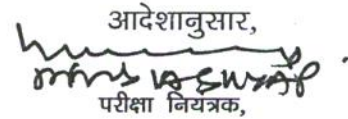 आदेशानुसार,
परीक्षा नियत्रक,